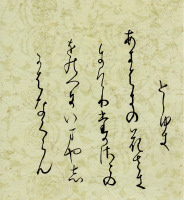 としゆき
あきはきの花さき
にけり高さこの
をのへ いまやし
か なくらん